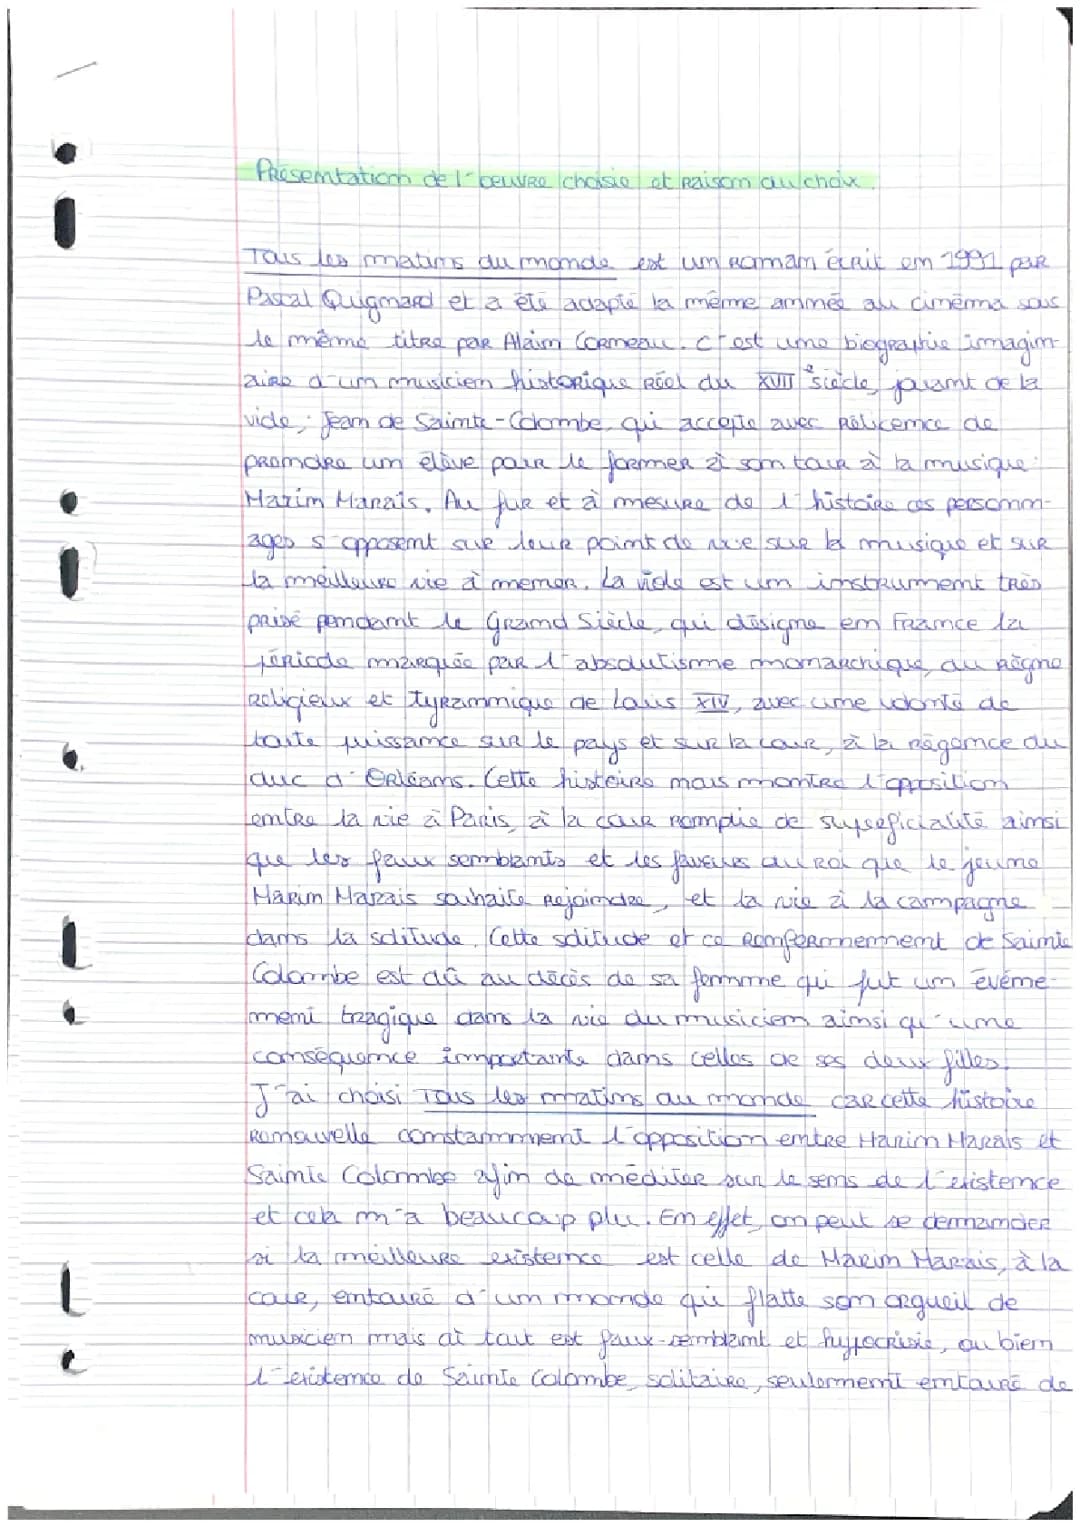 Présentation de l'oeuvre choisie et raison du choix.
Tous les matins du monde est un roman écrit en 1991 par
Pascal Quignard et a été adapté la même année au cinéma sous
le même titre par Alain Corneau. C'est une biographie imagin-
aire d'un musicien historique réel du XVIIe siècle, jouant de la
viole ; Jean de Sainte-Colombe, qui accepte avec réticence de
prendre un élève pour le former à son tour à la musique :
Marin Marais. Au fur et à mesure de l'histoire ces personn-
ages s'opposent sur leur point de vue sur la musique et sur
la meilleure vie à mener. La viole est un instrument très
prisé pendant le Grand Siècle, qui désigne en France la
période marquée par l'absolutisme monarchique, du règne
religieux et tyrannique de Louis XIV, avec une volonté de
toute puissance sur le pays et sur la cour, à la régence du
duc d'Orléans. Cette histoire nous montre l'opposition
entre la vie à Paris, à la cour remplie de superficialité ainsi
que les faux semblants et les faveurs du Roi que le jeune
Marin Marais souhaite rejoindre, et la vie à la campagne
dans la solitude. Cette solitude et ce renfermement de Sainte
Colombe est dû au décès de sa femme qui fut un événe-
ment tragique dans la vie du musicien ainsi qu'une
conséquence importante dans celles de ses deux filles.
J'ai choisi Tous les matins du monde car cette histoire
renouvelle constamment l'opposition entre Marin Marais et
Sainte Colombe afin de méditer sur le sens de l'existence
et cela m'a beaucoup plu. En effet, on peut se demander
si la meilleure existence est celle de Marin Marais, à la
cour, entouré d'un monde qui flatte son orgueil de
musicien mais où tout est faux-semblant et hypocrisie, ou bien
l'existence de Sainte Colombe, solitaire, seulement entouré de